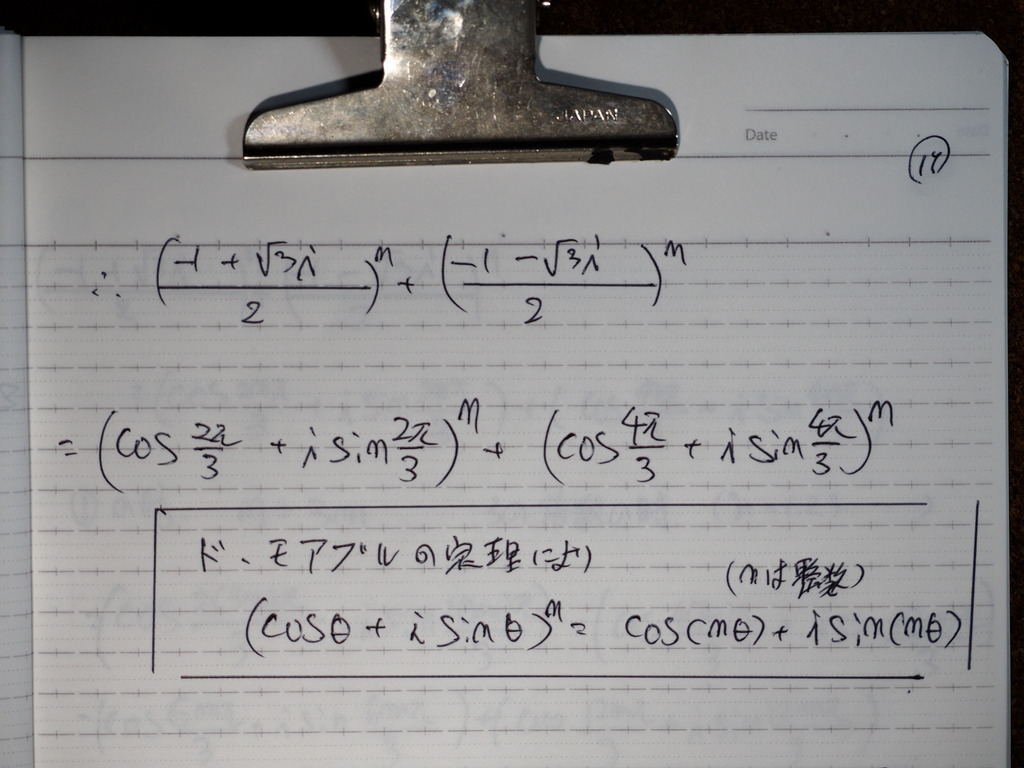 JAPAN
Date
∴ ((-1 + √3i)/2)^n + ((-1 - √3i)/2)^n
= (cos 2π/3 + i sin 2π/3)^n + (cos 4π/3 + i sin 4π/3)^n
ド・モアブルの定理により
(nは整数)
(cosθ + i sinθ)^n = cos(nθ) + i sin(nθ)